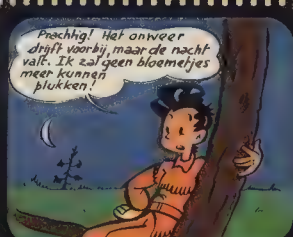 Prachtig! Het onweer
drijft voorbij, maar de nacht
valt. Ik zal geen bloemetjes
meer kunnen
plukken!